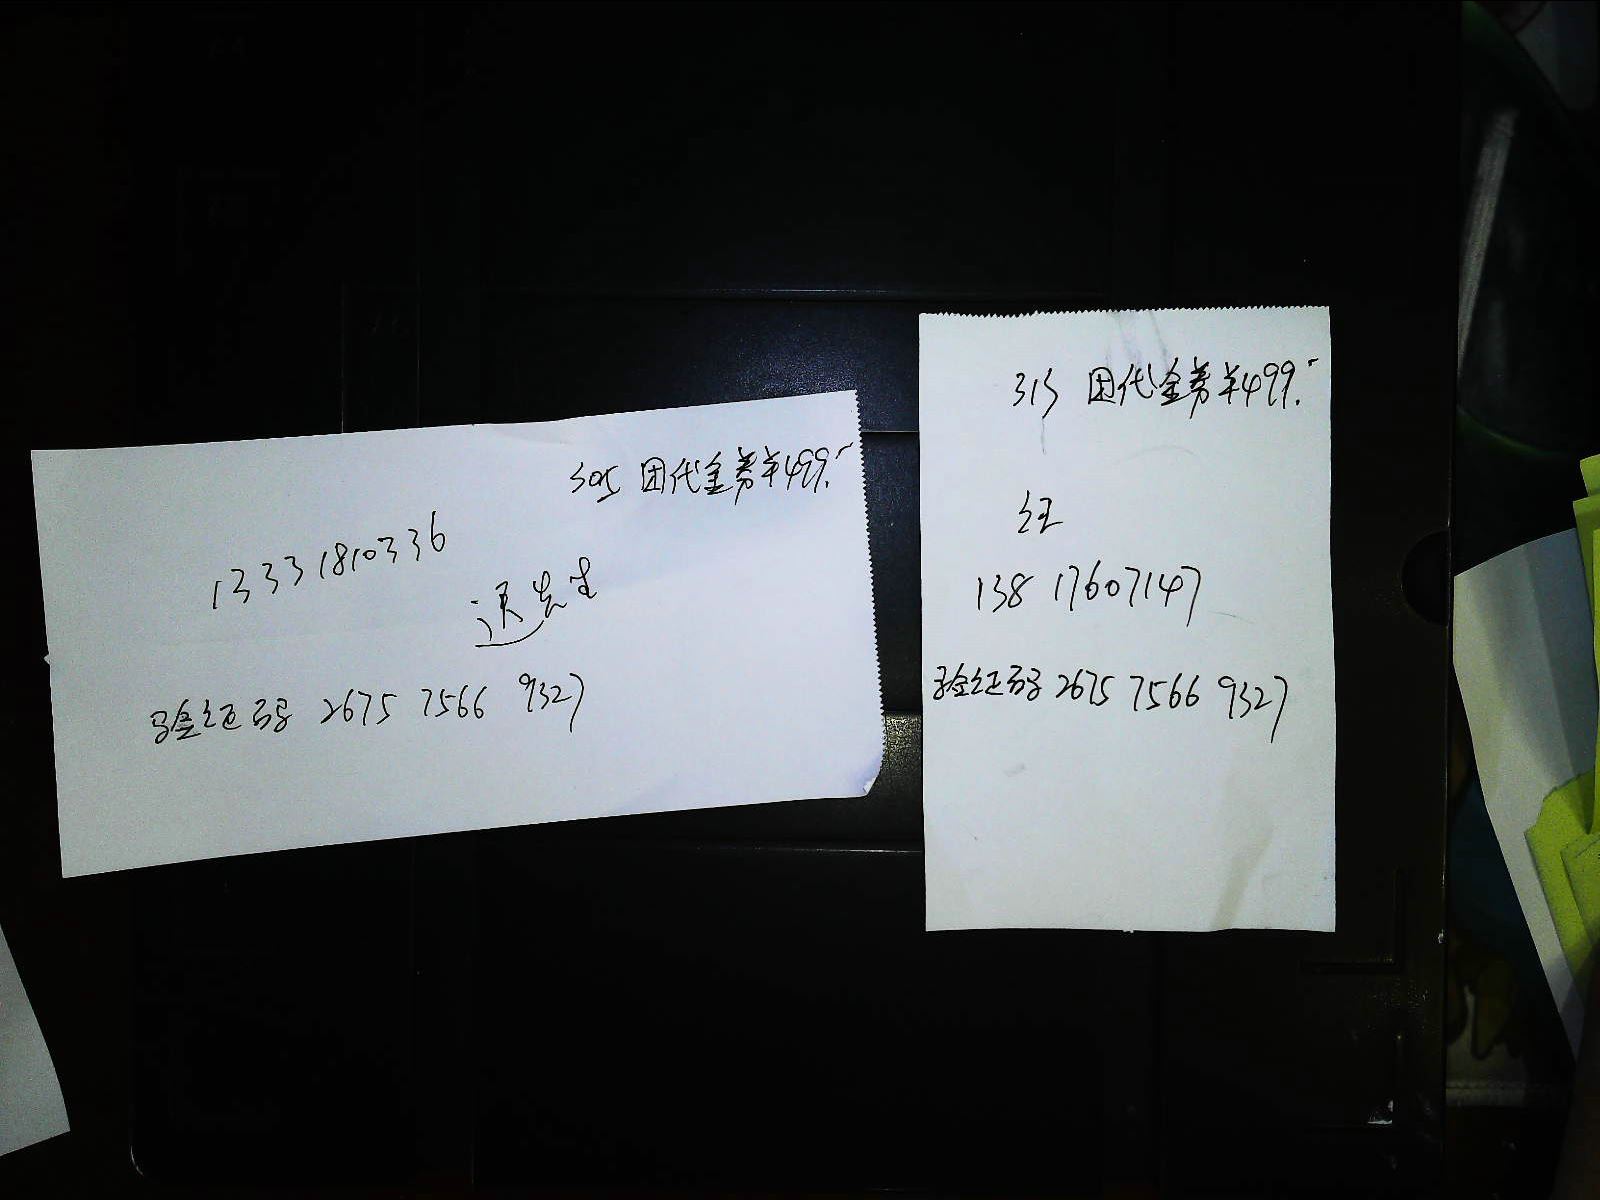 305 团代金券¥499.-
13331810336
退先生
验证码 2675 7566 9327
315 团代金券¥499.-
汪
13817607147
验证码 2675 7566 9327